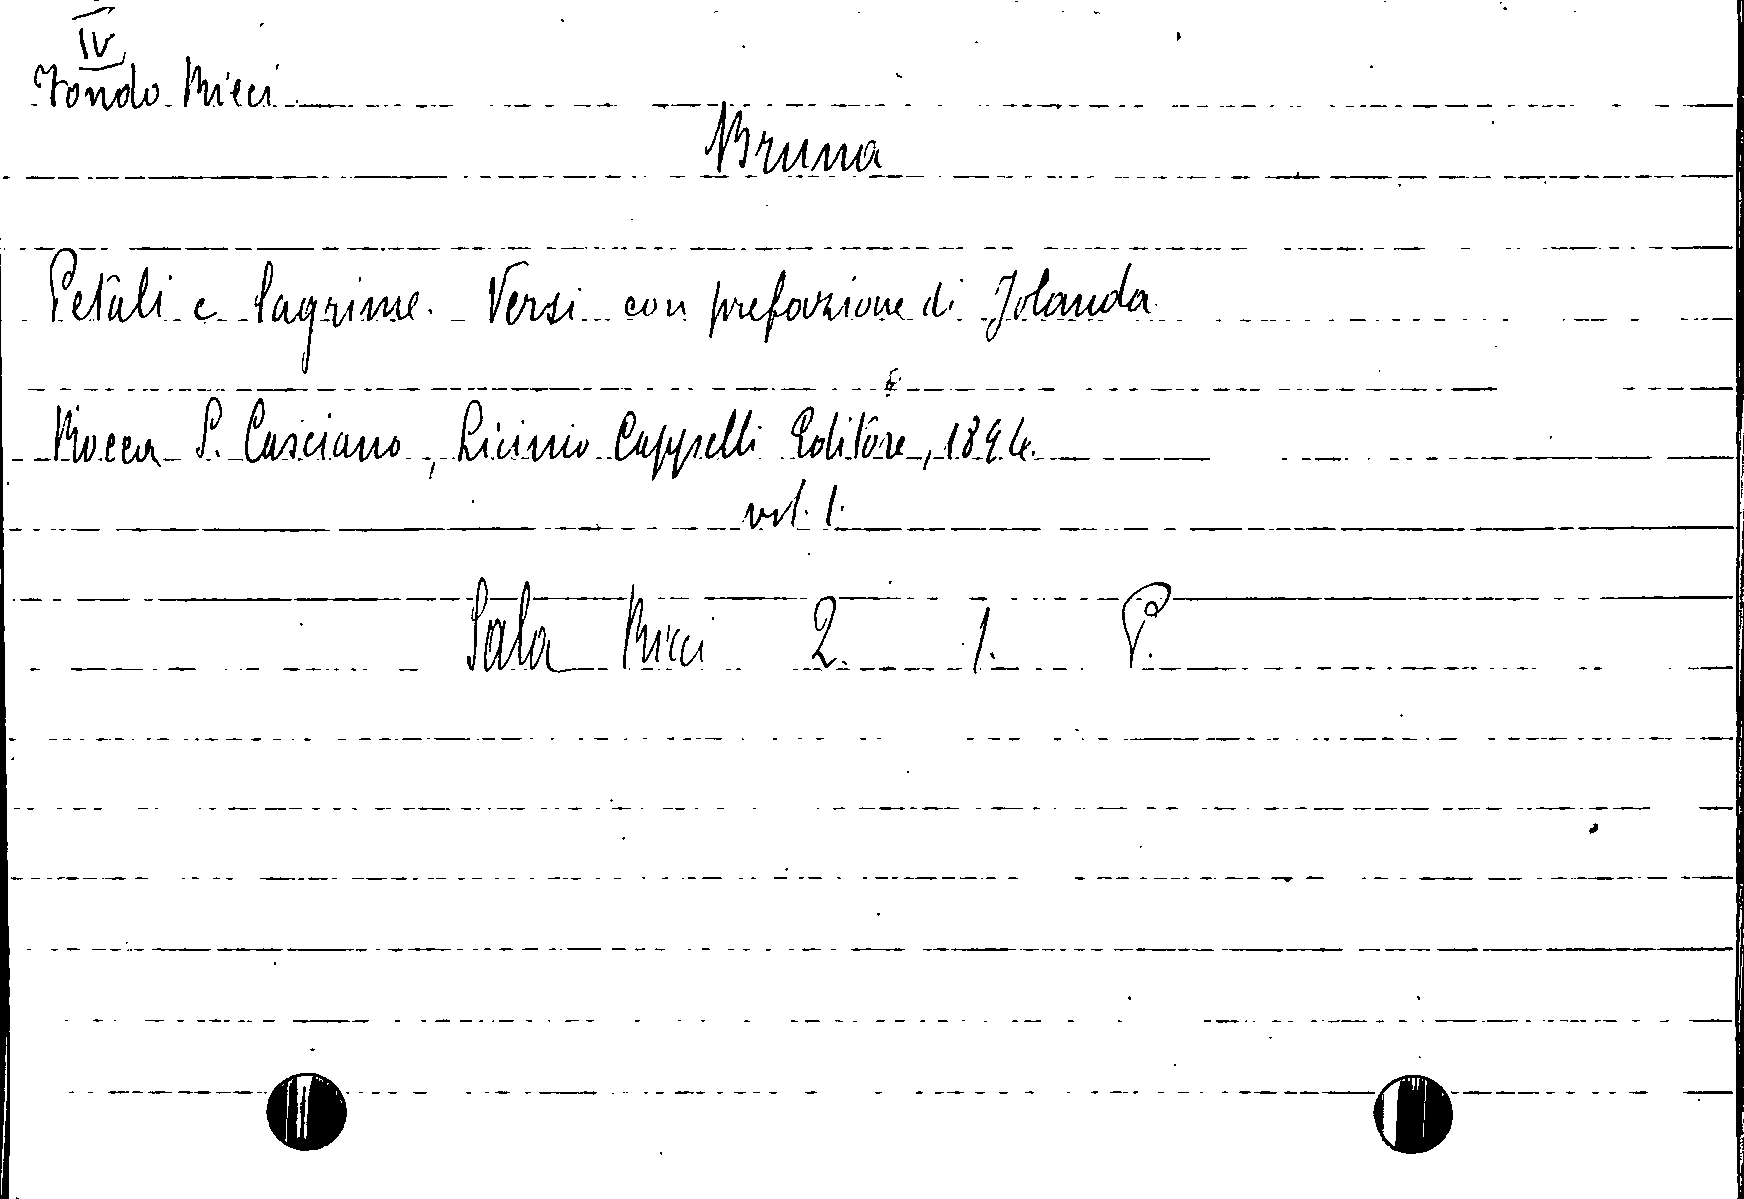 IV
Fondo Ricci
Bruna
Petali e lagrime. Versi con prefazione di Jolanda
Rocca S. Casciano, Licinio Cappelli Editore, 1894.
vol. 1.
Sala Ricci 2. 1. P.